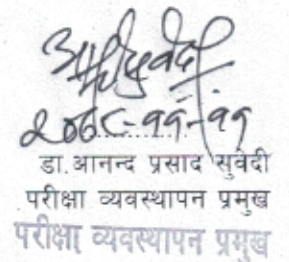 २०७८-११-११
डा.आनन्द प्रसाद सुवेदी
परीक्षा व्यवस्थापन प्रमुख
परीक्षा व्यवस्थापन प्रमुख